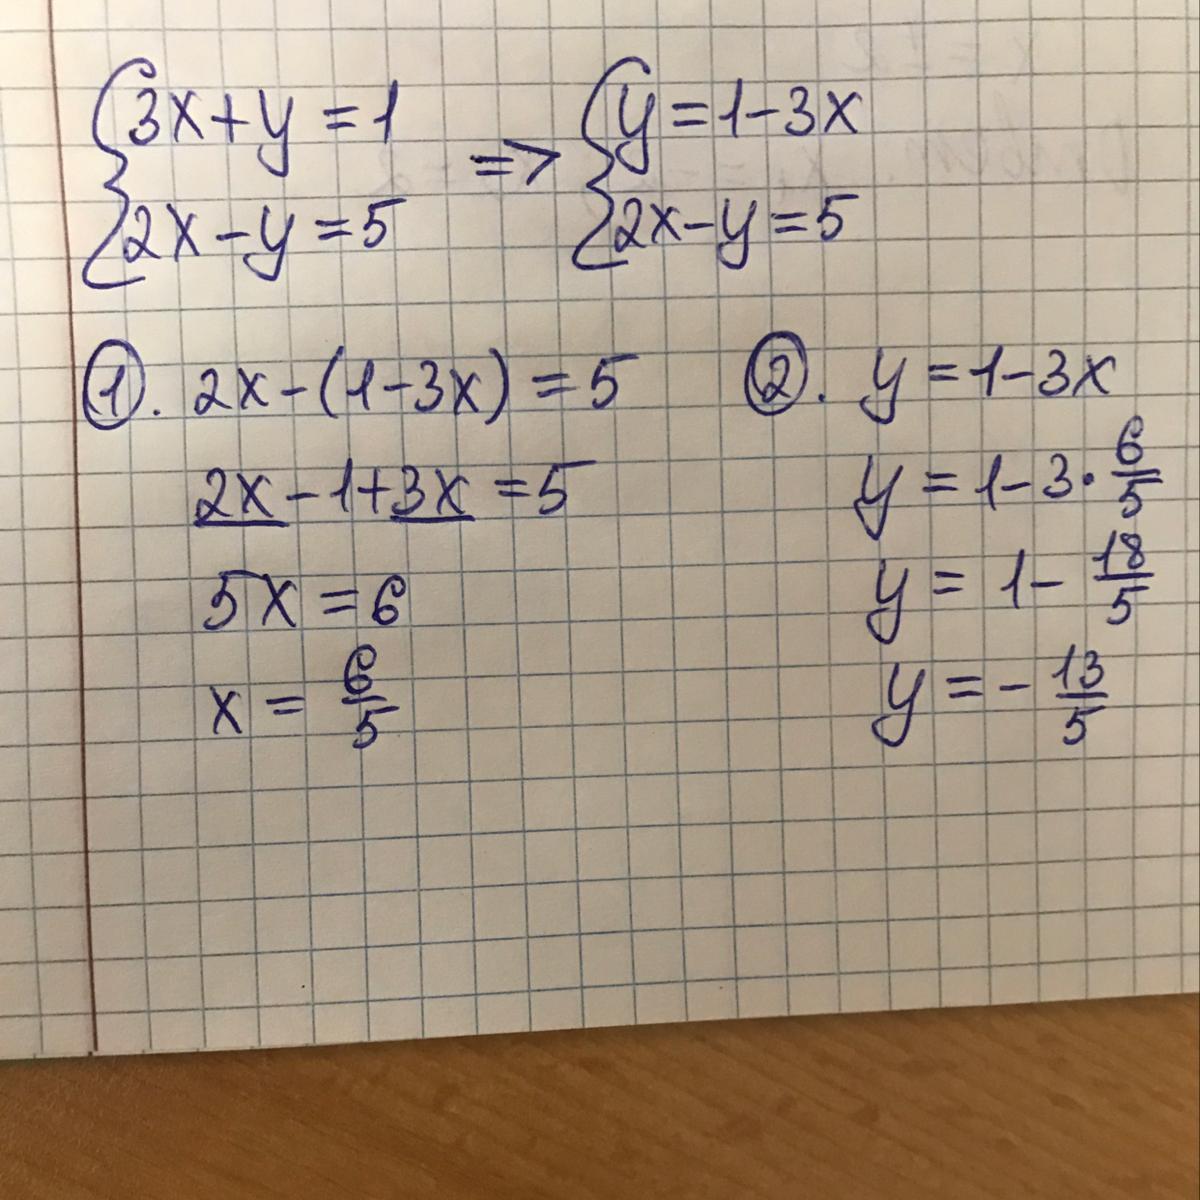 {3x+y=1 => {y=1-3x
{2x-y=5 {2x-y=5
①. 2x-(1-3x)=5
2x-1+3x=5
5x=6
x=6/5
②. y=1-3x
y=1-3·6/5
y=1-18/5
y=-13/5